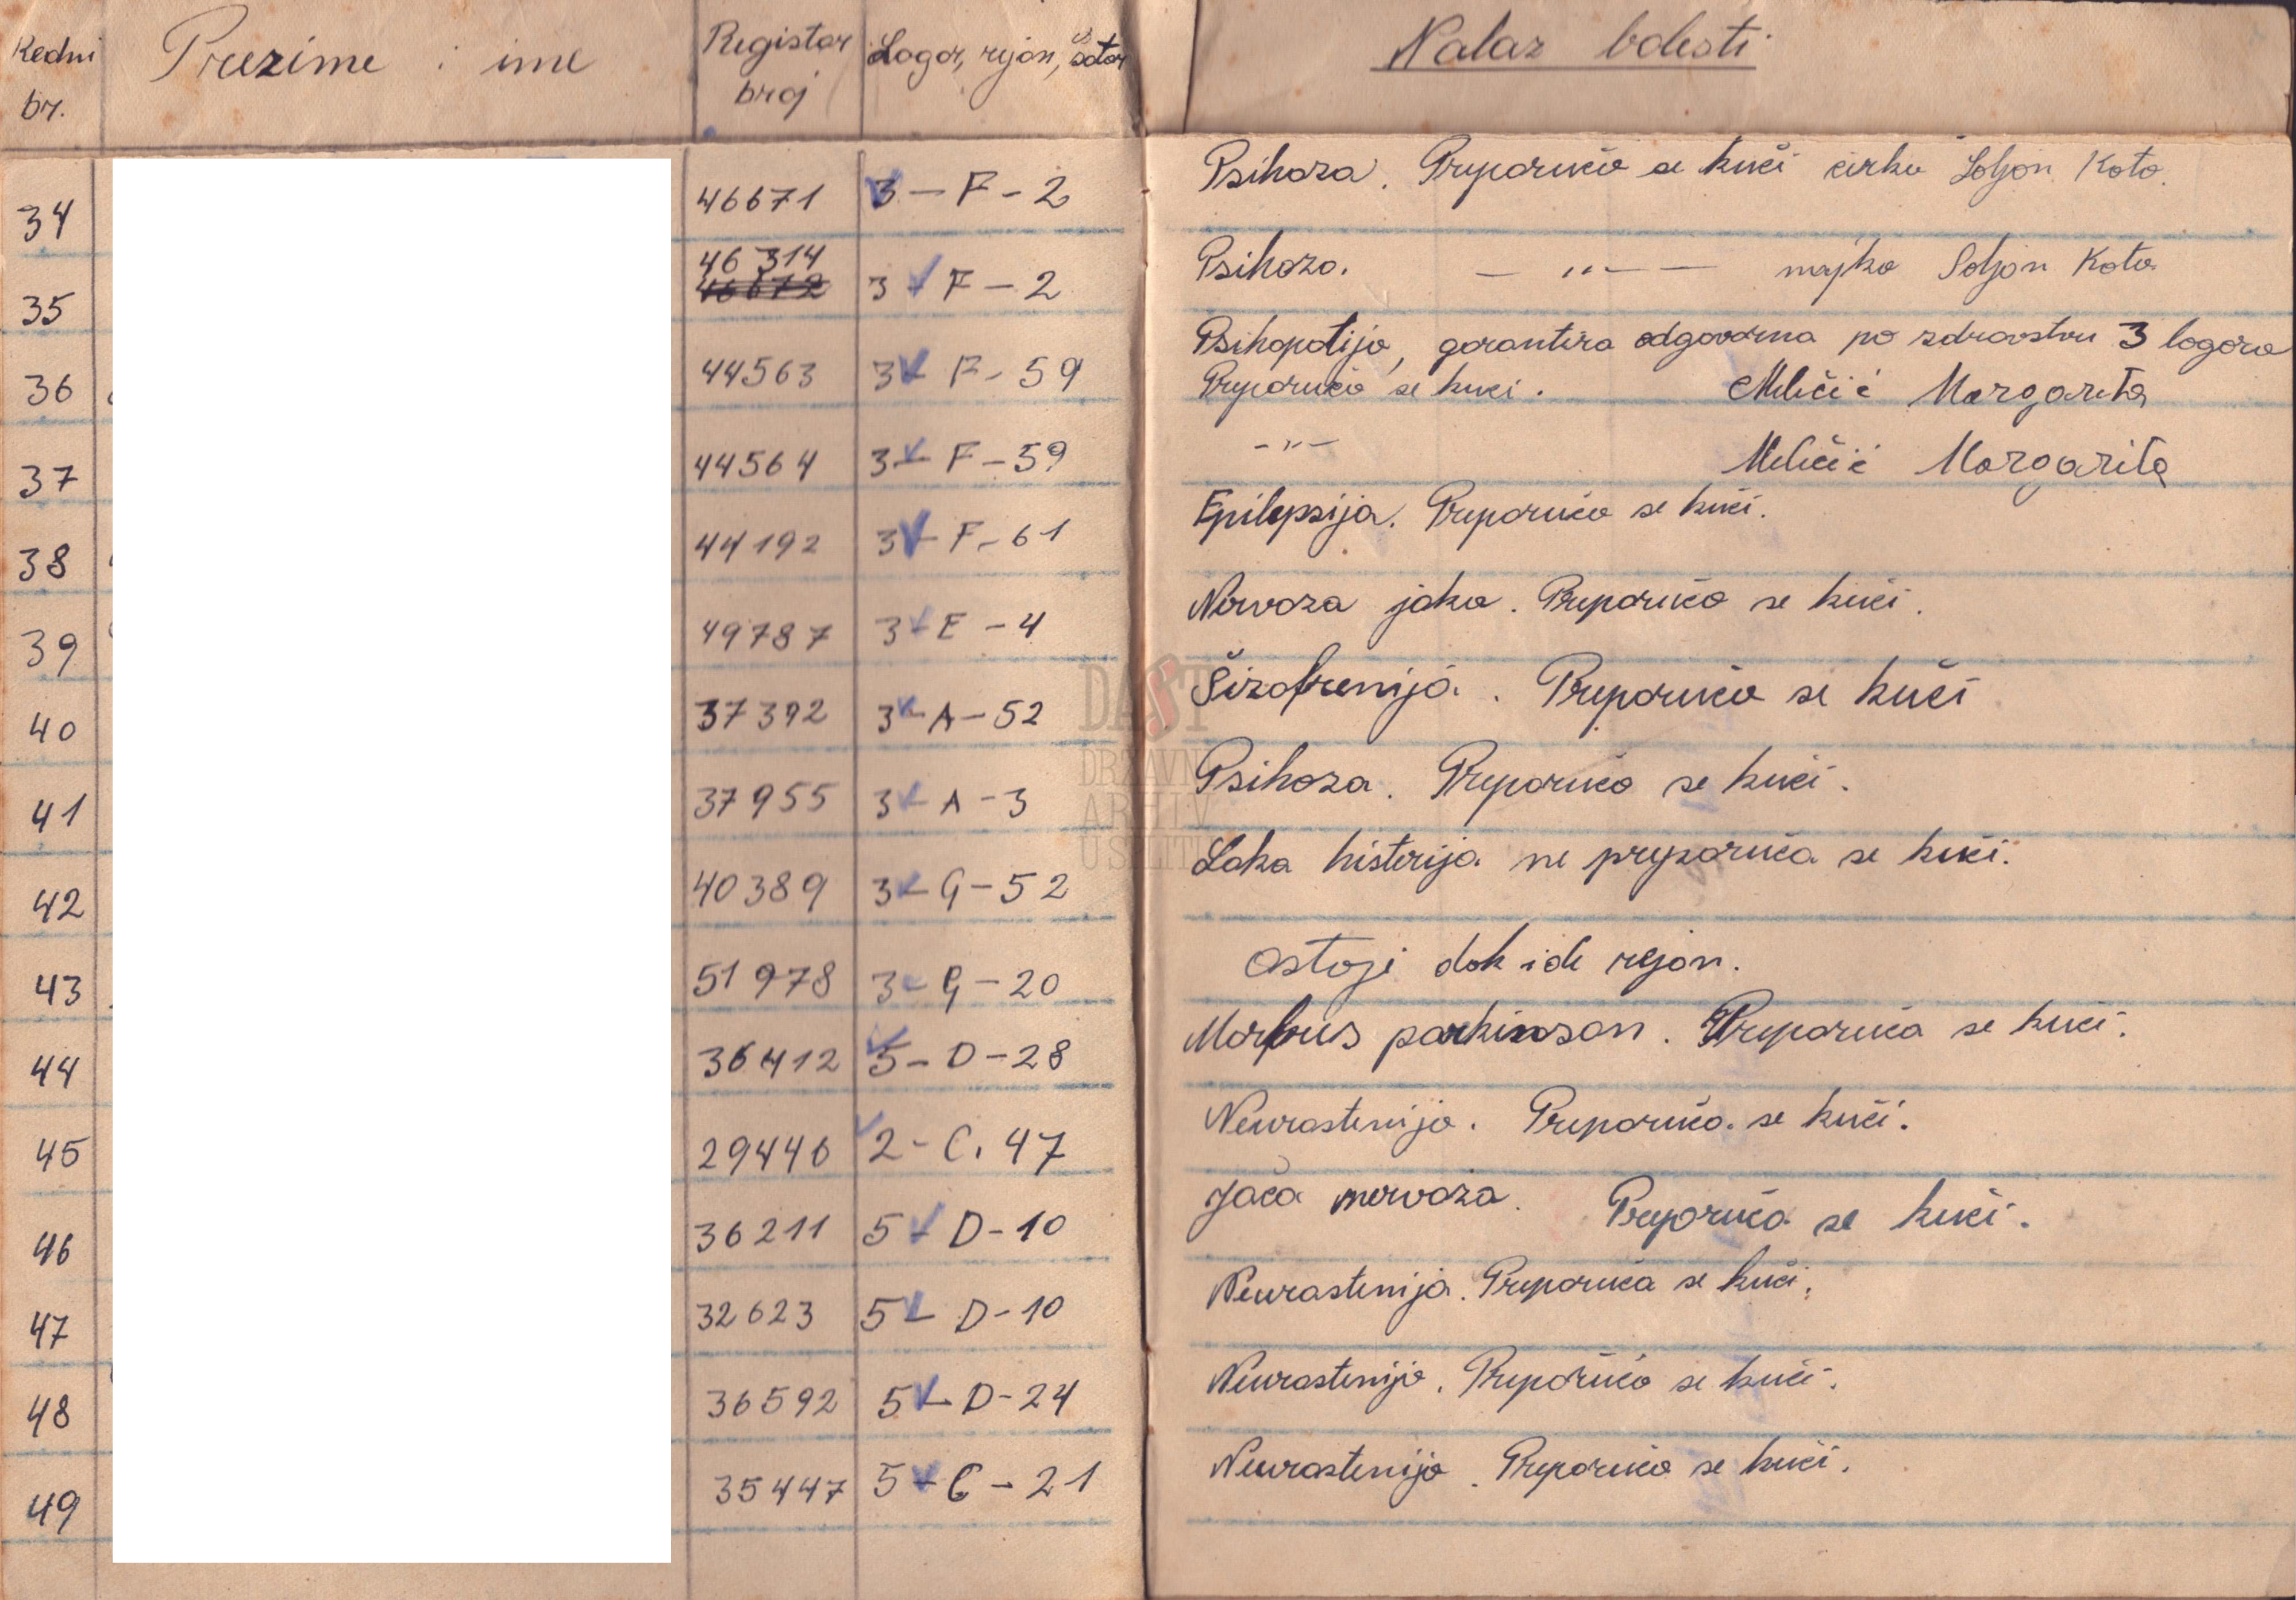 Redni br. Prezime i ime Registar broj Logor, rejon, šator Nalaz bolesti
34 46671 3 – F – 2 Psihoza. Preporuča se kući Soljan Kata.
46 314
35 46672 3 – F – 2 Psihoza. – " – majka Soljan Kata
36 44563 3 – F – 59 Psihopatija, garantira odgovorna po zdravstvu 3 logora
Preporuča se kući. Miličić Margarita
37 44564 3 – F – 59 – " – Miličić Margarita
38 44192 3 – F – 61 Epilepsija. Preporuča se kući.
39 49787 3 – E – 4 Nervoza jaka. Preporuča se kući.
40 37392 3 – A – 52 Šizofrenija. Preporuča se kući
41 37955 3 – A – 3 Psihoza. Preporuča se kući.
42 40389 3 – G – 52 Laka histerija ne preporuča se kući.
43 51978 3 – G – 20 Ostaje dok ide rejon.
44 36412 5 – D – 28 Morbus parkinson. Preporuča se kući.
45 29446 2 – C. 47 Neurastenija. Preporuča se kući.
46 36211 5 – D – 10 Jača nervoza. Preporuča se kući.
47 32623 5 – D – 10 Neurastenija. Preporuča se kući.
48 36592 5 – D – 24 Neurastenija. Preporuča se kući.
49 35447 5 – C – 21 Neurastenija. Preporuča se kući.
DAST
DRŽAVNI
ARHIV
U SPLITU